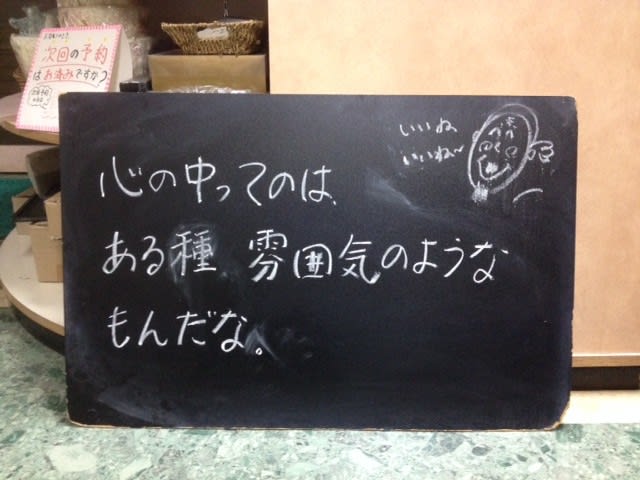 次回の予約
はお済みですか?
いいね
いいね〜
心の中ってのは、
ある種 雰囲気のような
もんだな。